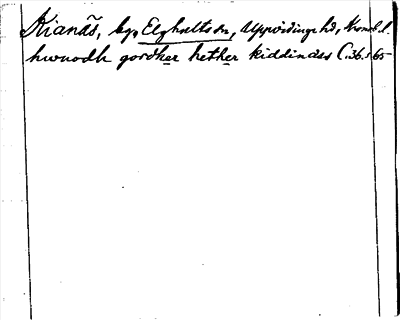 Kianäs, by, Elghults sn, Uppvidinge hd, Kronob. l.
hwuodh gordher hether kiddinäss C.36. s 65